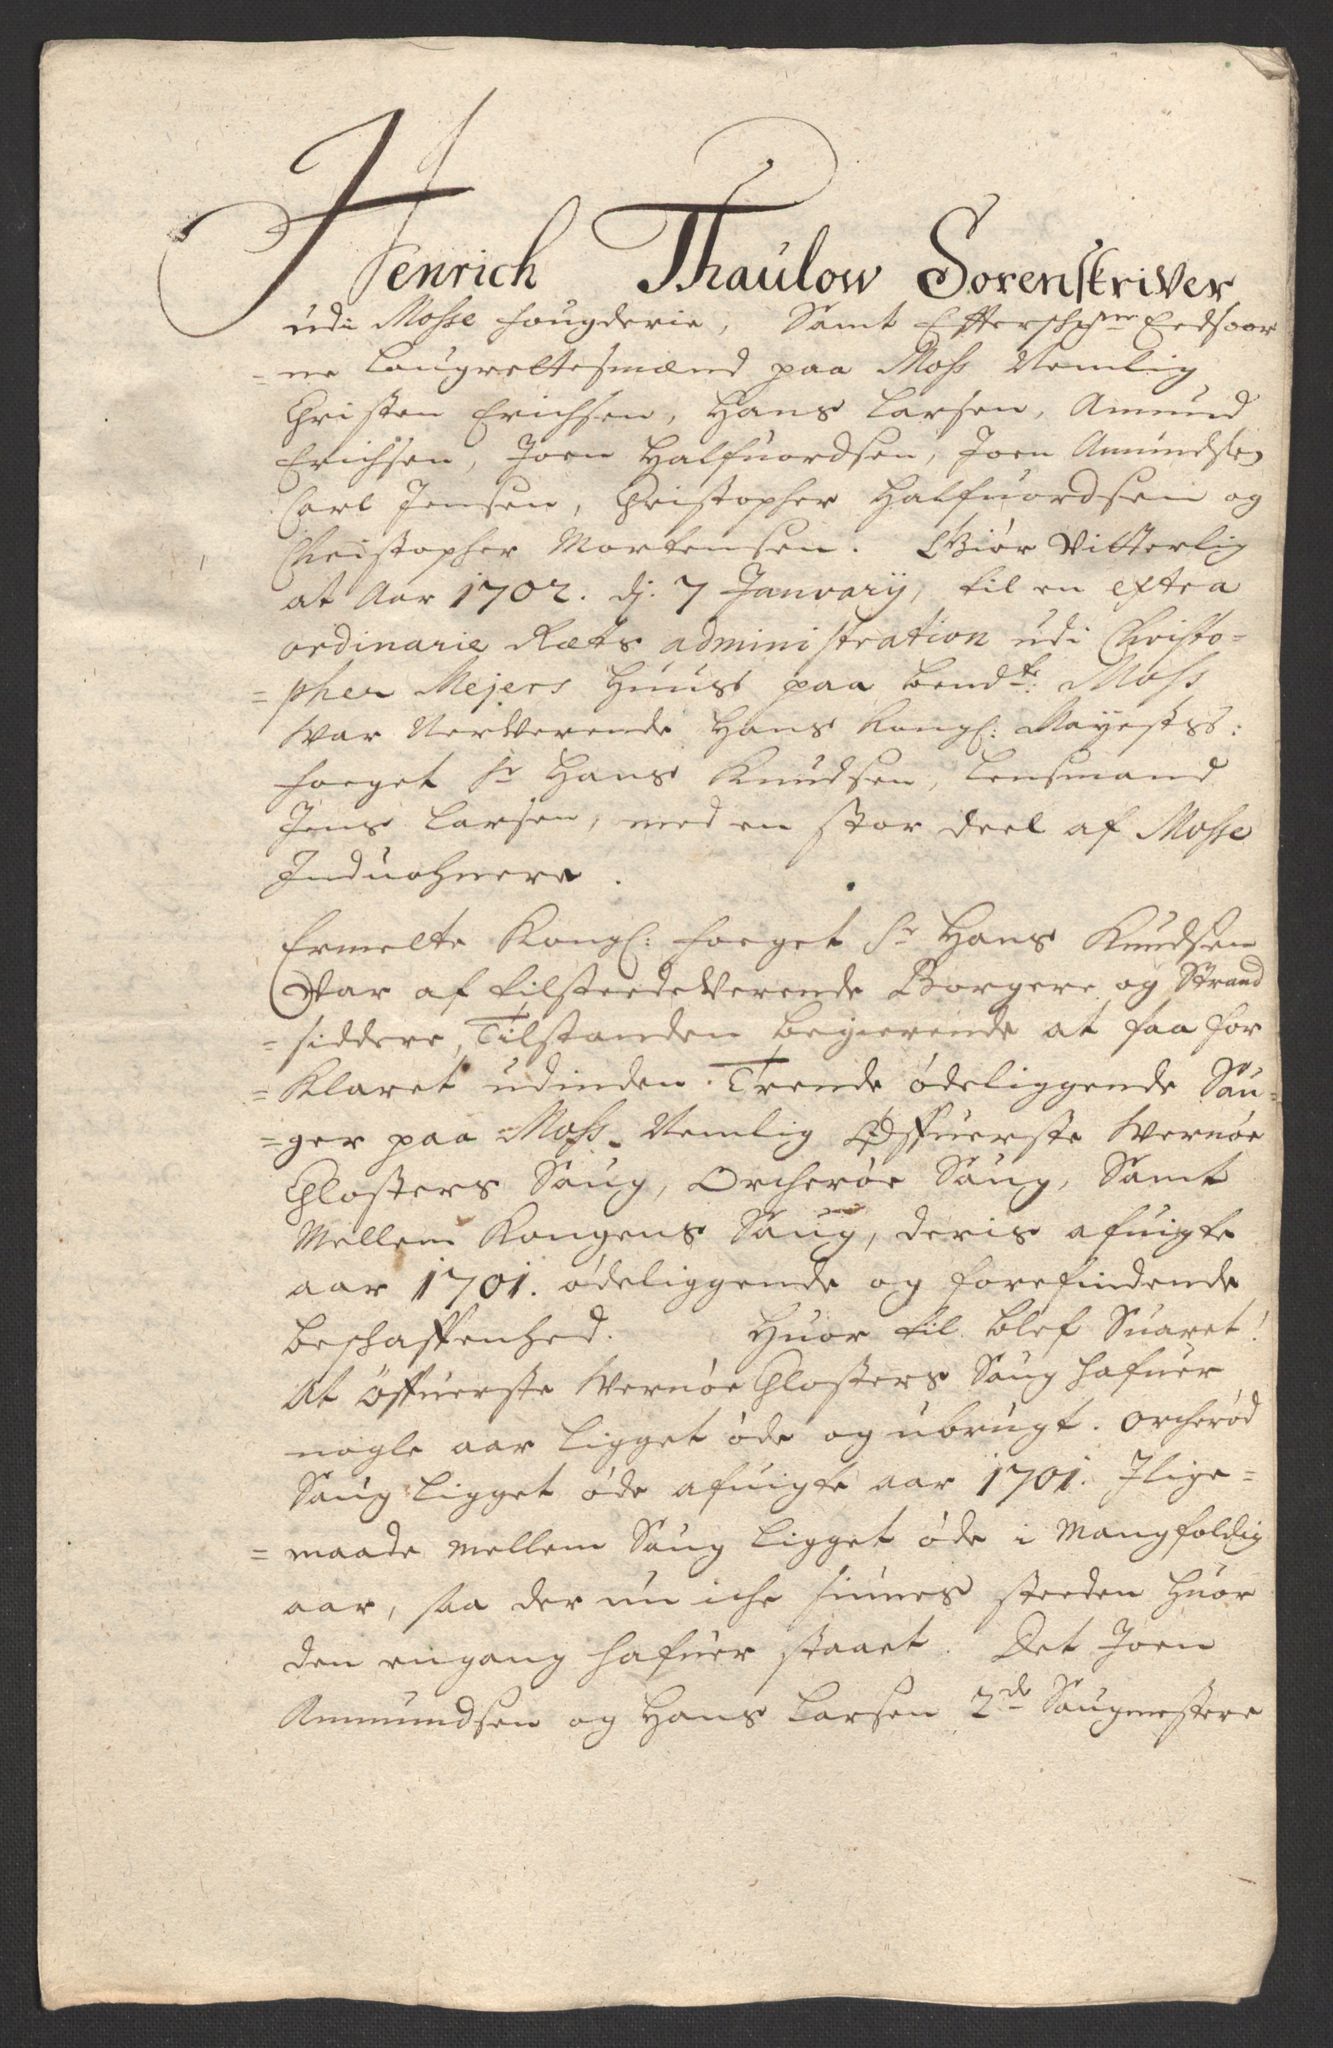 Henrich Thaulow Sorenskriver
udi Mosse fougderie, Samt Effterschne Eedsoor
= ne Laugrettesmænd paa Moss Nemlig
Christen Erichsen, Hans Larsen, Amund
Erichsen, Joen Halfuordsen, Joen Amundsen
Carl Jensen, Christopher Halfuordsen og
Christopher Mortensen. Giör Vitterlig
at Aar 1702. dj. 7 Januarij, til en extra
ordinarie Rets administration udi Christo=
= pher Mejers Huus paa bendte: Moss
War Nerverende Hans Kongl: Mayestts:
foeget Sr Hans Knudsen, Lensmand
Jens Larsen, med en stor deel af Mosse
Induohnere.
Ermelte Kongl: foeget Sr Hans Knudsen
Var af tilsteedeverende Borgere og Strand
= siddere, Tilstanden begierende at faa for
= Klaret udinden Trende ödeliggende Sau=
= ger paa Moss Nemlig Öffuerste Wernöe
Closters Saug, Orcheröe Saug, Samt
Mellem Kongens Saug, deris afuigte
aar 1701. ödeliggende og forefindende
beschaffenhed. Huor til blef Suaret!
At Öffuerste Wernöe Closters Saug hafuer
nogle aar ligget öde og ubrugt. Orcheröd
Saug ligget öde afuigte aar 1701. Jlige=
= maade mellem Saug ligget öde i Mangfoldig
aar, saa der nu iche finnes steeden huor
den engang hafuer staaet. Det Joen
Ammundsen og Hans Larsen 2de Saugmestere